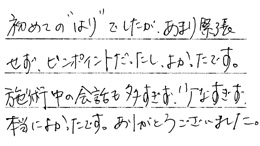 初めての"はり"でしたが、あまり緊張
せず、ピンポイントだったし、よかったです。
施術中の会話も多すぎず、少なすぎず
本当によかったです。ありがとうございました。